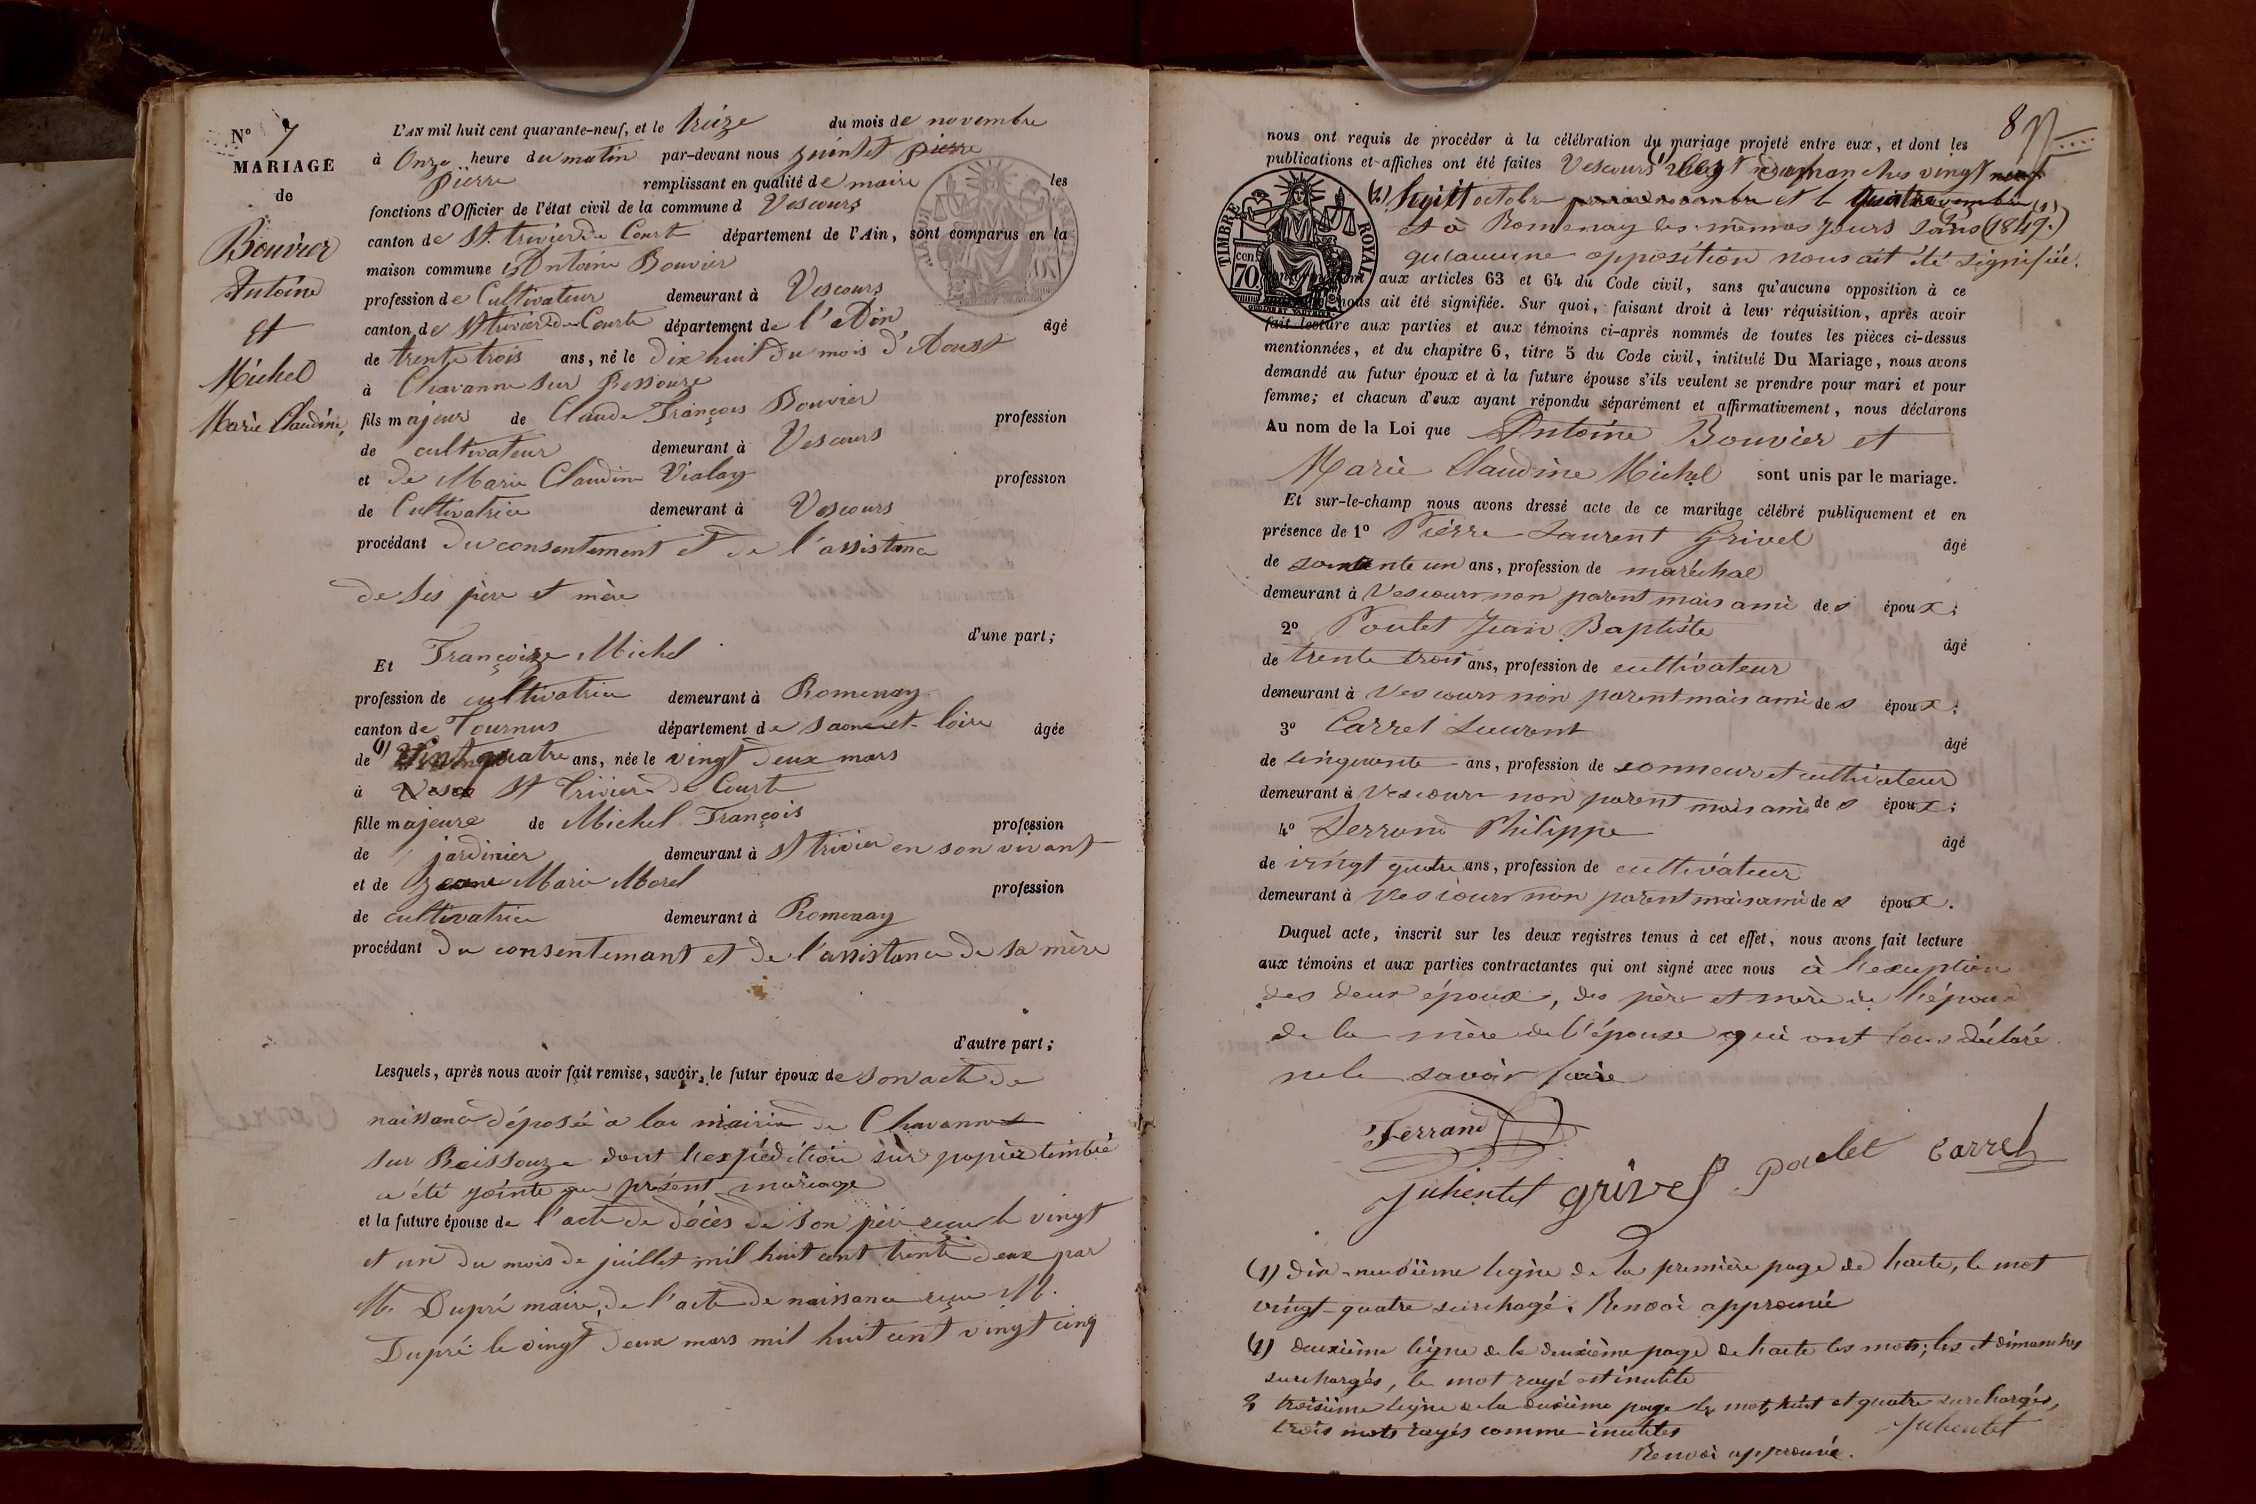 N° 7
MARIAGE
de
Bouvier
Antoine
Et
Michel
Marie Claudine,
L'AN mil huit cent quarante-neuf, et le treize du mois de novembre
à Onze heure du matin par-devant nous pierre
Pierre remplissant en qualité de maire les
fonctions d'Officier de l'état civil de la commune d Vescours
canton de St. trivier de Courte département de l'Ain, sont comparus en la
maison commune Antoine Bouvier
profession de Cultivateur demeurant à Vescours
canton de St trivier de Courte département de l'Ain âgé
de trente trois ans, né le dix huit du mois d'Aoust
à Chavanne sur Ressouze
fils majeur de Claude François Bouvier profession
de cultivateur demeurant à Vescours
et de Marie Claudine Vialay profession
de Cultivatrice demeurant à Vescours
procédant du consentement et de l'assistance
de ses père et mère
d'une part;
Et Françoise Michel
profession de cultivatrice demeurant à Romenay
canton de Tournus département de saone et loire âgée
de (1) vingt quatre ans, née le vingt deux mars
à St Trivier de Courte
fille majeure de Michel François profession
de jardinier demeurant à St trivier en son vivant
et de Marie Morel profession
de cultivatrice demeurant à Romenay
procédant du consentemant et de l'assistance de sa mère
d'autre part;
Lesquels, après nous avoir fait remise, savoir, le futur époux de son acte de
naissance déposée à la mairie de Chavannes
sur Reissouze dont l'expédition sur papier timbré
a été jointe au présent mariage
et la future épouse de l'acte de décès de son père reçu le vingt
et un du mois de juillet mil huit cent trente deux par
M. Dupré maire, de l'acte de naissance reçu M.
Dupré le vingt deux mars mil huit cent vingt cinq
nous ont requis de procéder à la célébration du mariage projeté entre eux, et dont les
publications et affiches ont été faites Vescours les dimanches vingt
huit octobre et le quatre novembre
et à Romenay les mêmes jours sans (1849.)
qu'aucune opposition nous ait été signifiée.
TIMBRE ROYAL
70
aux articles 63 et 64 du Code civil, sans qu'aucune opposition à ce
nous ait été signifiée. Sur quoi, faisant droit à leur réquisition, après avoir
fait lecture aux parties et aux témoins ci-après nommés de toutes les pièces ci-dessus
mentionnées, et du chapitre 6, titre 5 du Code civil, intitulé Du Mariage, nous avons
demandé au futur époux et à la future épouse s'ils veulent se prendre pour mari et pour
femme; et chacun d'eux ayant répondu séparément et affirmativement, nous déclarons
Au nom de la Loi que Antoine Bouvier et
Marie Claudine Michel sont unis par le mariage.
Et sur-le-champ nous avons dressé acte de ce mariage célébré publiquement et en
présence de 1° Pierre Laurent Grivel âgé
de ans, profession de maréchal
demeurant à Vescours non parent mais ami des époux;
2° Poulet Jean Baptiste âgé
de trente trois ans, profession de cultivateur
demeurant à Vescours non parent mais ami des époux;
3° Carrel Laurent âgé
de cinquante ans, profession de sonneur et cultivateur
demeurant à Vescours non parent mais ami des époux;
4° Ferrand Philippe âgé
de vingt quatre ans, profession de cultivateur
demeurant à Vescours non parent mais ami des époux.
Duquel acte, inscrit sur les deux registres tenus à cet effet, nous avons fait lecture
aux témoins et aux parties contractantes qui ont signé avec nous à l'exception
des deux époux, des père et mère de l'époux
de la mère de l'épouse qui ont tous déclaré
ne le savoir faire
Ferrand
grivel poulet Carrel
(1) dix-neuvième ligne de la première page de haute, le mot
vingt-quatre surchagé. Renvoi approuvé
(1) deuxième ligne de la deuxième page de haute les mots; les et dimanches
surchargés, le mot rayé est inutile
2 troisième ligne de la deuxième page les mots huit et quatre surchargés,
trois mots rayés comme inutiles
Renvoi approuvée.